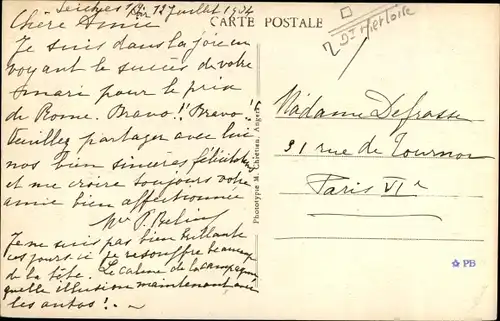 Seiches s/Loir 12 Juillet 1934
CARTE POSTALE
Chère Amie
Je suis dans la joie en
voyant le succès de votre
mari pour le prix
de Rome. Bravo!! Bravo!
Veuillez partager avec lui
nos bien sincères félicitations
et me croire toujours votre
amie bien affectionnée
P. Belin
Je ne suis pas bien brillante
ces jours ci je resouffre beaucoup
de la tête. Le calme de la campagne
quelle illusion maintenant avec
les autos!
Phototypie M. Chrétien, Angers
Madame Defrasse
31 rue de Tournon
Paris VIe
PB